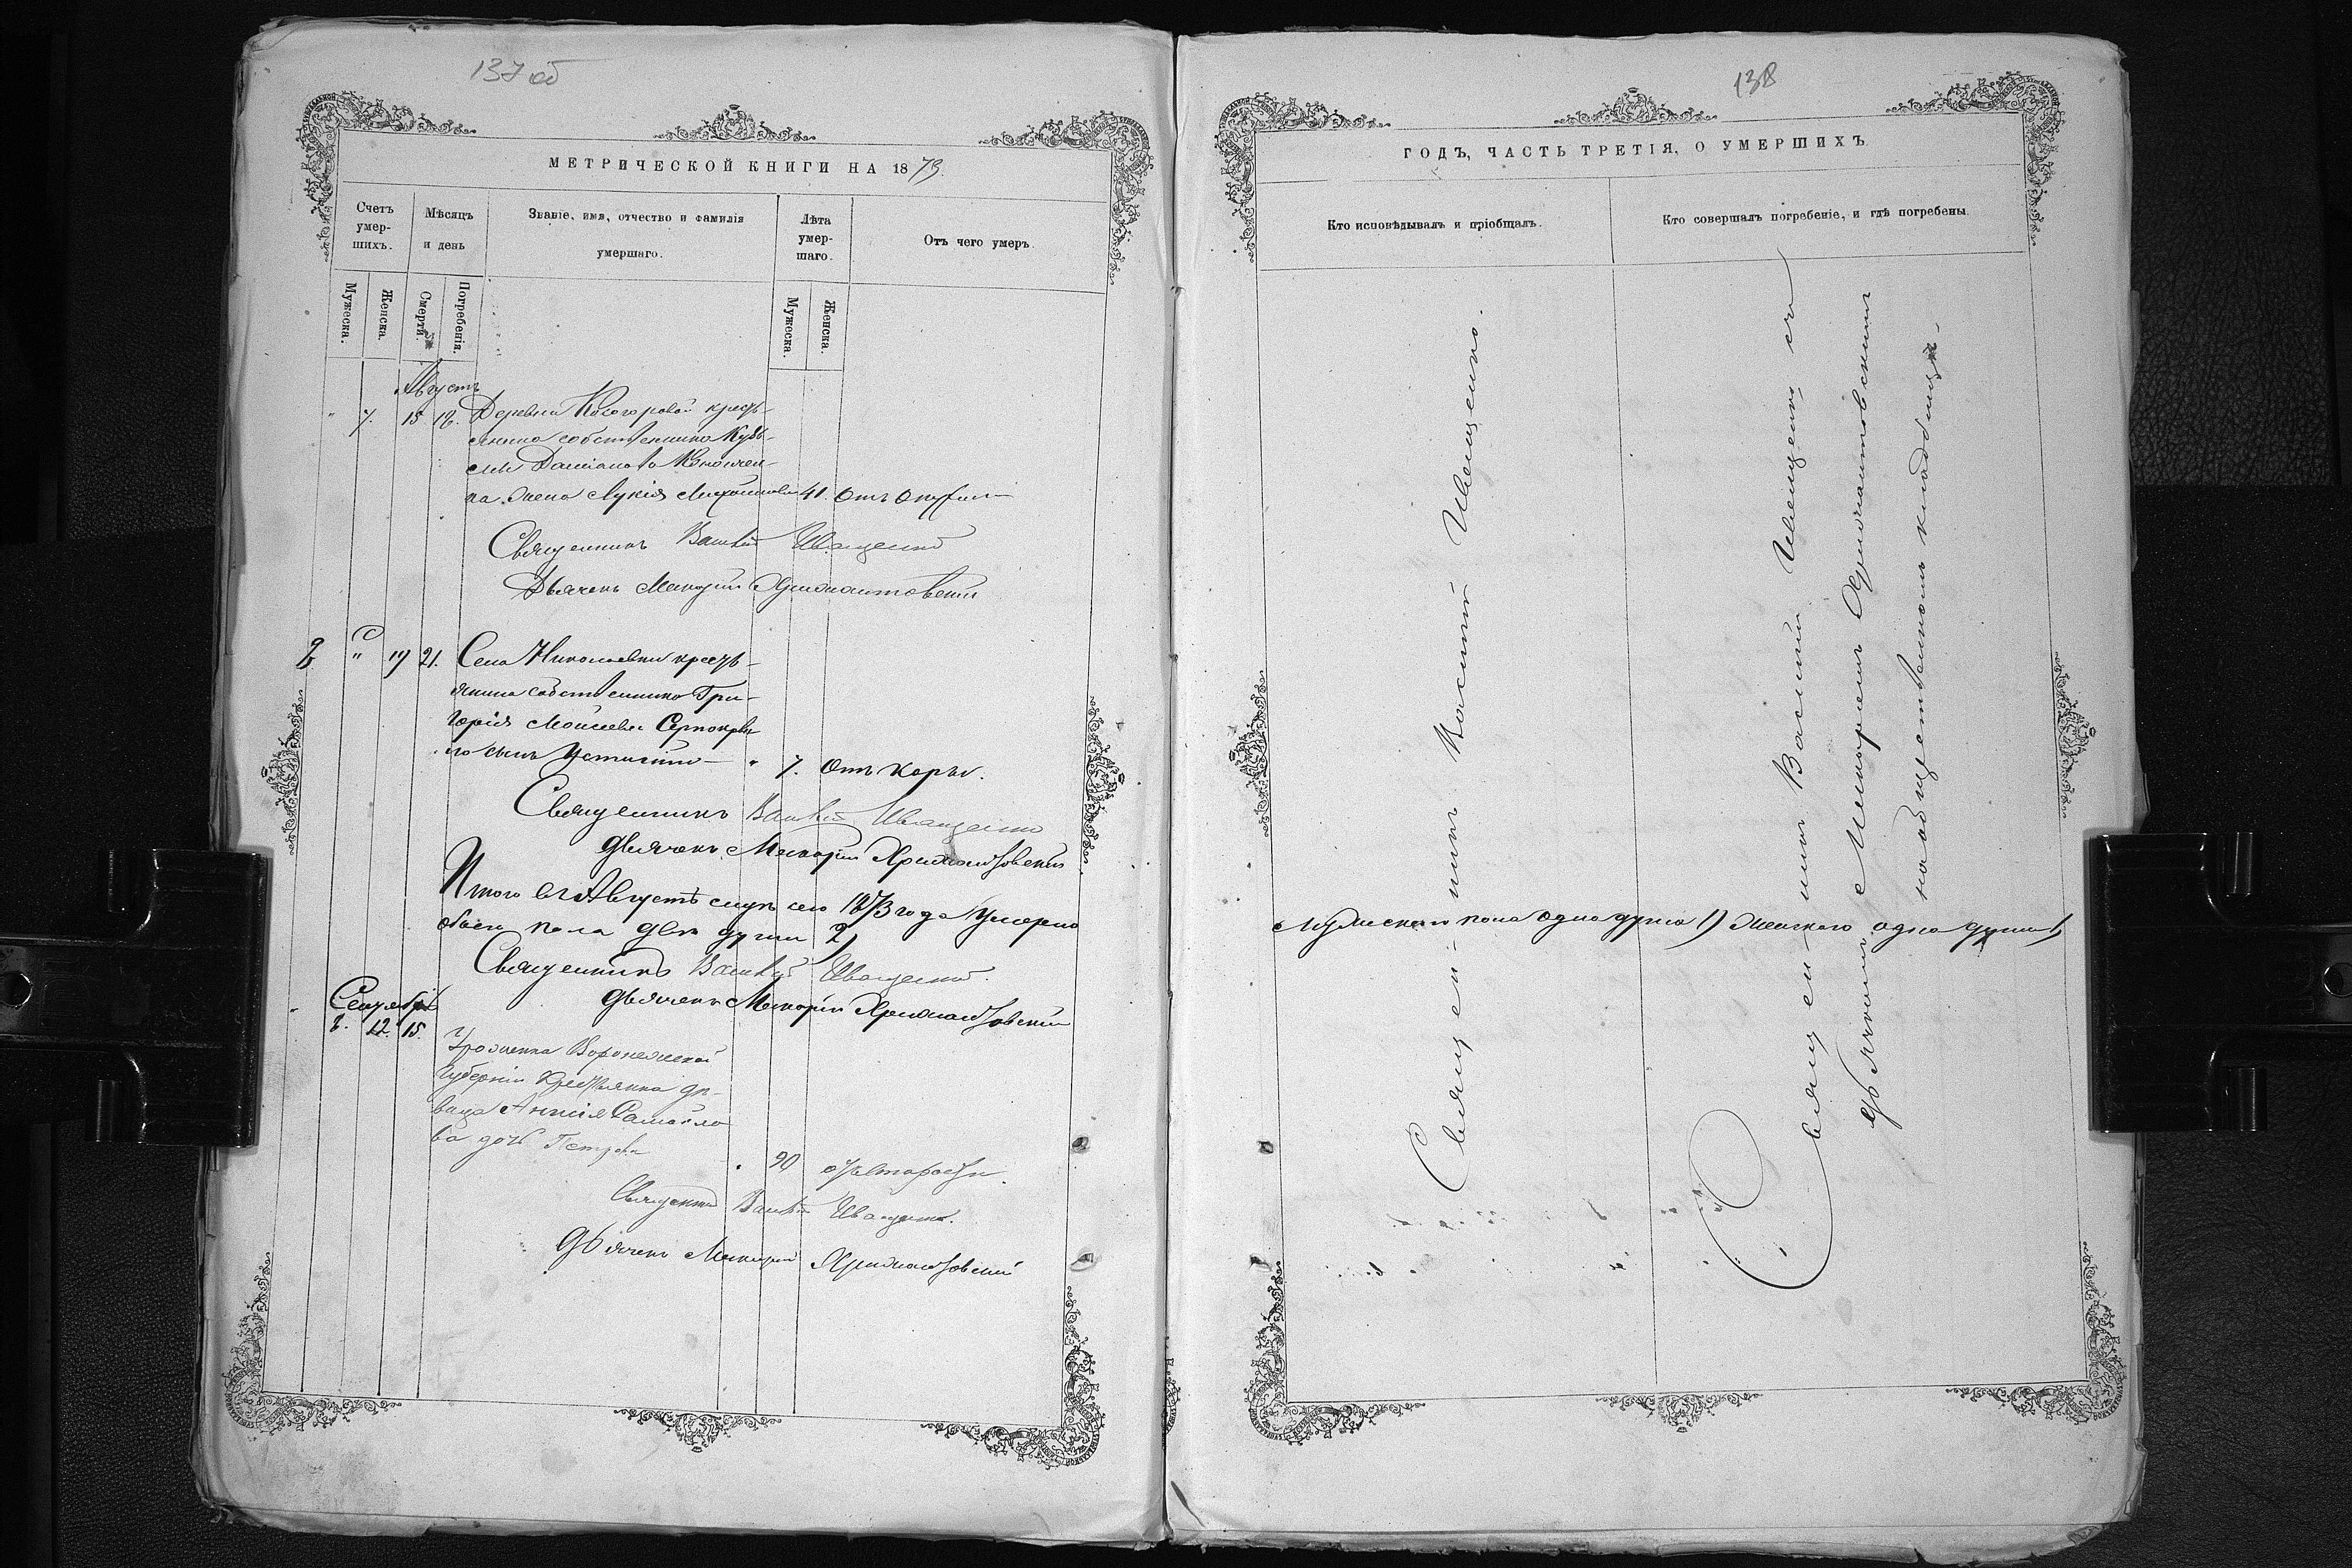 137 об
МЕТРИЧЕСКОЙ КНИГИ НА 1873.
Счетъ умер- шихъ.
Мѣсяцъ и день
Званіе, имя, отчество и фамилія умершаго.
Лѣта умер- шаго.
Отъ чего умеръ.
Мужеска.
Женска.
Смерти.
Погребенія.
Мужеска.
Женска.
Августъ
" 7. 15 18. Деревни Косогоровой кресть-
янина собственника Кузь-
мы Даміанова
жена Лукія 41. Отъ
Священникъ Василій Иващенко
Дьячекъ Макарій Хрисанфовскій
8 " 19 21. Села Николаевки кресть-
янина собственника Гри-
горія Моисеева
сынъ Устинъ " 7. Отъ кори.
Священникъ Василій Иващенко
дьячекъ Макарій Хрисанфовскій
Итого въ Августѣ сего 1873 года умерло
обоего пола двѣ души 2)
Священникъ Василій Иващенко.
дьячекъ Макарій Хрисанфовскій
Сентябрь
8. 12. 15.
Уроженка Воронежской
Губерніи крестьянка дѣ-
вица Самойло
ва дочь Петрова
" 90 отъ старости.
Священникъ Василій Иващенко.
Дьячекъ Макарій Хрисанфовскій
138
ГОДЪ, ЧАСТЬ ТРЕТІЯ, О УМЕРШИХЪ
Кто исповѣдывалъ и пріобщалъ.
Кто совершалъ погребеніе, и гдѣ погребены.
Священникъ Василій Иващенко.
Священникъ Василій Иващенко съ
дьячкомъ Макаріемъ Хрисанфовскимъ
на общественномъ кладбищѣ.
Мужескаго пола одна душа 1) Женскаго одна душа 1)